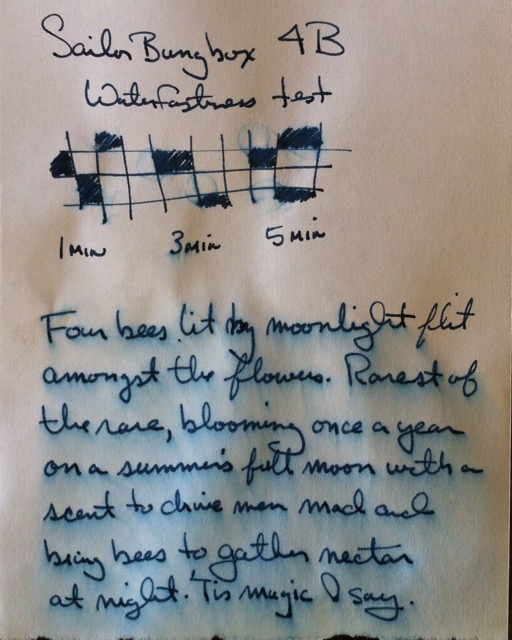 Sailor Bungbox 4B
Waterfastness test
1 Min 3 Min 5 Min
Four bees lit by moonlight flit
amongst the flowers. Rarest of
the rare, blooming once a year
on a summer's full moon with a
scent to drive men mad and
bring bees to gather nectar
at night. 'Tis magic I say.